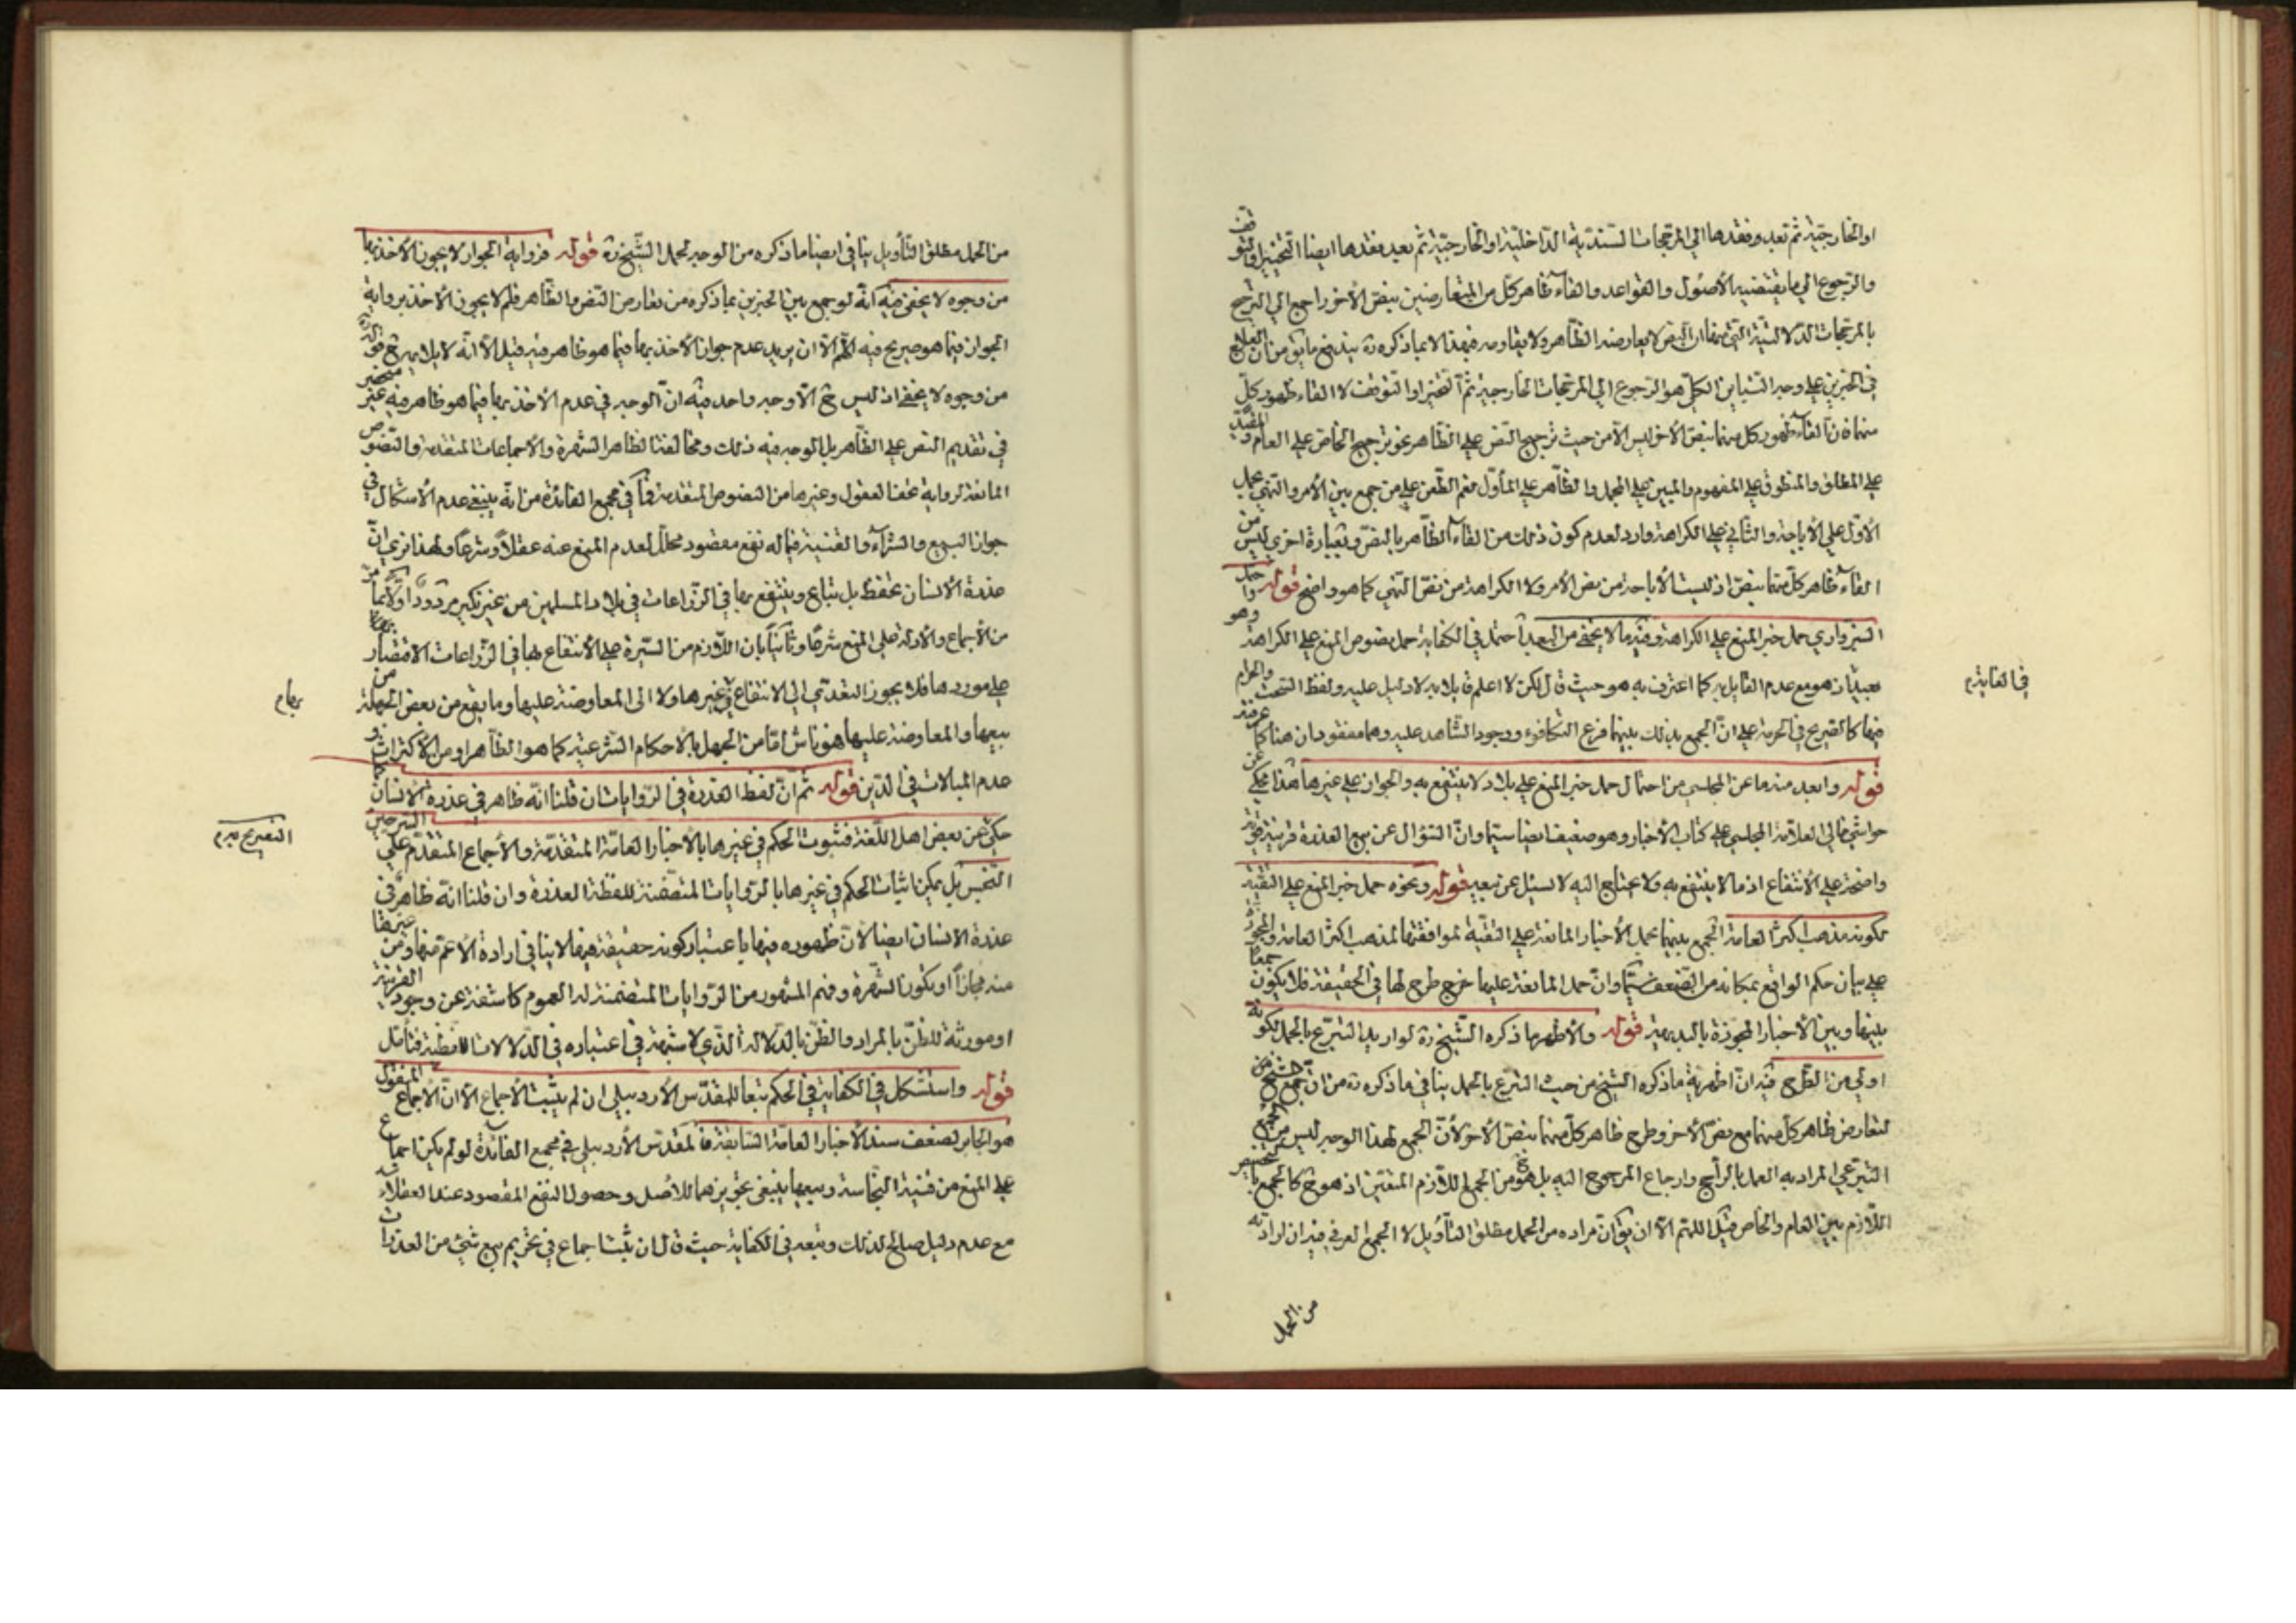 او الخارجيّة ثم بعد وفقدها الى المرجحات السندية الداخلية او الخارجيّة ثم بعد فقدها ايضا التخيير او التوقف
والرجوع الى ما يقتضيه الأصول والقواعد والغاء ظاهر كل من المتعارضين بنصّ الأخر راجع الى الترجيح
بالمرجحات الدلالتية التي منها ان النص لا يعارضه الظاهر ولا يقاومه فبهذا الاعباذكره ره يندفع ما يق من ان العلاج
في الخبرين على وجه التباين الكلي هو الرجوع الى المرجحات الخارجية ثم التخيير او التوقف لا الغاء ظهور كل
منهما فان الغاء ظهور كل منهما بنص الأخر ليس الا من حيث ترجيح النص على الظاهر نحو ترجيح الخاص على العام والمقيّد
على المطلق والمنطوق على المفهوم والمبين على المجمل والظاهر على المأوّل نعم الطعن على من جمع بين الأمر والنهي بحمل
الأوّل على الأباحة والثاني على الكراهة وارد لعدم كون ذلك من الغاء الظاهر بالنصّ وبعبارة اخرى ليس من
الغاء ظاهر كل منهما بنصّ اذ ليست الأباحة من نص الأمر ولا الكراهة من نصّ النهي كما هو واضح قوله
السبزواري حمل خبر المنع على الكراهة وفيه ما لا يخفى من البعد احتمل في الكفاية حمل نصوص المنع على الكراهة وهو
بعيد اذ هو مع عدم القايل به كما اعترف به هو حيث قال لكن لا اعلم قايلا به لا دليل عليه ولفظ السحت والحرام
فيها كالصريح في الحرمة على انّ الجمع بذلك بينهما فرع التكافؤ ووجود الشاهد عليه وهما مفقودان هنا كما
قوله وابعد منه ما عن المجلسي من احتمال حمل خبر المنع على بلاد لا ينتفع به والجواز على غيرها هذا محكي عن
حواشي خالي العلامة المجلسي على كتاب الأخبار وهو ضعيف ايضا سيما وانّ السؤال عن بيع العذرة قرينة
واضحة على الأنتفاع اذ ما لا ينتفع به ولا يحتاج اليه لا يسئل عن بيعه قوله ونحوه حمل خبر المنع على التقية
لكونه مذهب اكثر العامة الجمع بينهما بحمل الأخبار المانعة على التقية لموافقتها لمذهب اكثر العامة
على بيان حكم الواقع بمكانه من الضعف سيّما وانّ حمل المانعة عليها خرج طرح لها في الحقيقة فلا يكون جمعا
بينها وبين الأخبار المجوزة بالبديهة قوله والأظهر ما ذكره الشيخ ره لو اريد التبرّع بالحمل لكونه
اولى من الطرح فيه انّ اظهرية ما ذكره الشيخ من حيث التبرّع بالحمل ينافي ما ذكره ره من ان جمع الشيخ من
لتعارض ظاهر كل منهما مع نصّ الأخر وطرح ظاهر كل منهما بنصّ الأخر لأنّ الجمع لهذا الوجه ليس من الجمع
التبرّعي المراد به العمل بالراجح وارجاع المرجوح اليه بل هو من الجمل اللازم المتعيّن اذ هو ح كالجمع
اللازم بين العام والخاص قبل اللهم الا ان يق انّ مراده من الحمل مطلق التأويل لا الجمع العرفي فيه ان ارادته
من الحمل
من الحمل مطلق التأويل ينافي ايضا ما ذكره من الوجه لحمل الشيخ ره قوله فرواية الجواز لا يجوز الأخذ بها
من وجوه لا يخفى فيه انّه لو جمع بين الخبرين بما ذكره من تعارض النص والظاهر فلم لا يجوز الأخذ برواية
الجواز فيما هو صريح فيه اللهم الا ان يريد عدم جواز الأخذ بها فيما هو ظاهر فيه قبل الا انه لا يلايم ح قوله
من وجوه لا يخفى اذ ليس ح الّا وجه واحد فيه انّ الوجه في عدم الأخذ بها فيما هو ظاهر فيه غير منحصر
في تقديم النص على الظاهر بل الوجه فيه ذلك ومخالفتا لظاهر الشهرة والأجماعات المتقدمة والنصوص
المانعة لرواية تحف العقول وغيرها من النصوص المتقدمة فما في مجمع الفائدة من انّه ينبغي عدم الأشكال في
جواز البيع والشراء والقنية فيما له نفع مقصود محلل لعدم المنع عنه عقلاً وشرعاً ولهذا نرى انّ
عذرة الأنسان تحفظ بل تباع وينتفع بها في الزراعات في بلاد المسلمين من غير نكير مردود اولاً بما مرّ
من الأجماع والأدلة على المنع شرعاً وثانياً بان اللازم من السيرة على الأنتفاع بها في الزراعات الاقتصار
على موردها فلا يجوز التعدي الى الانتفاع في غيرها ولا الى المعاوضة عليها وما يقع من بعض الجهلة من
بيعها والمعاوضة عليها هو ناش امّا من الجهل بالأحكام الشرعيّة كما هو الظاهر او من الأكتراث و
عدم المبالات في الدين قوله ثم انّ لفظ العذرة في الروايات ان قلنا انّه ظاهر في عذرة الأنسان كما
حكي عن بعض اهل اللّغة فثبوت الحكم في غيرها بالأخبار العامّة المتقدّمة والأجماع المتقدّم على السرجين
النجس بل يمكن اثبات الحكم في غيرها بالروايات المتضمّنة للفظة العذرة وان قلنا انه ظاهر في
عذرة الأنسان ايضا لأن ظهوره فيها باعتبار كونه حقيقة فيها لا ينافي ارادة الأعم منها ومن غيرها
منه مجازاً او يكون الشهرة وفهم المشهور من الروايات المتضمنة له العموم كاشفة عن وجود القرينة
او مورثة للظنّ بالمراد والظن بالدلالة الذي لا شبهة في اعتباره في الدلالات اللفظية فتأمل
قوله واستشكل في الكفاية في الحكم تبعا للمقدّس الأردبيلي ان لم يثبت الأجماع الّا انّ الأجماع المنقول
هو الجابر لضعف سند الأخبار العامّة السّابقة فالمقدّس الأردبيلي في مجمع الفائدة لو لم يكن اجماع
على المنع من قنية النجاسة وبيعها ينبغي تجويزهما للأصل وحصول النفع المقصود عند العقلاء
مع عدم دليل صالح لذلك وتبعه في الكفاية حيث قال ان ثبت اجماع في تحريم بيع شيء من العذرات